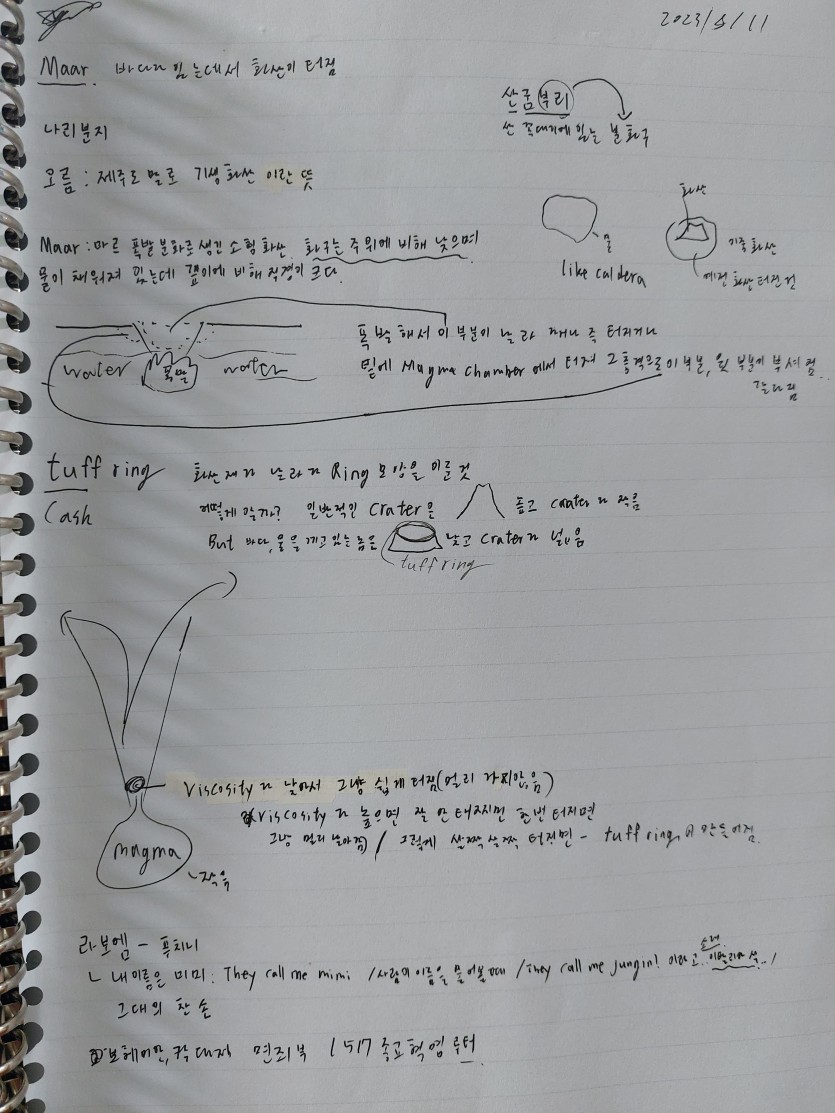 2023/4/11
Maar 바다가 있는데서 화산이 터짐
산굼부리
산 꼭대기에 있는 분화구
나리분지
오름 : 제주도 말로 기생화산 이란 뜻
화산
물
기중화산
예전 화산 터진 것
like caldera
Maar : 마르 폭발 분화로 생긴 소형 화산. 화구는 주위에 비해 낮으며
물이 채워져 있는데 깊이에 비해 직경이 크다.
water 폭발 water
폭발해서 이 부분이 날라 즉 터지거나
밑에 Magma chamber 에서 터져 그 충격으로 이 부분, 윗 부분이 부셔짐
갈라짐
tuff ring 화산재가 날라가 Ring 모양을 이룬 것
Cash
어떻게 알까? 일반적인 Crater은 높고 Crater가 작음
But 바다, 물을 끼고 있는 놈은 낮고 Crater가 넓음
tuff ring
Viscosity가 낮아서 그냥 쉽게 터짐 (멀리 가지않음)
viscosity가 높으면 잘 안 터지지만 한번 터지면
그냥 멀리 날아감 / 그렇게 살짝살짝 터지면 - tuff ring이 만들어짐.
magma
작음
라보엠 - 푸치니
ㄴ 내 이름은 미미 : They call me mimi / 사람의 이름을 물어볼 때 / They call me jungin! 이라고
그대의 찬 손
보헤미안, 면죄부 1517 종교혁명 루터